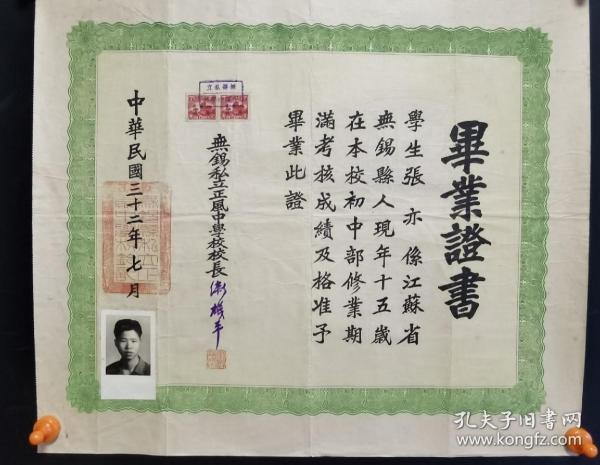 畢業證書
學生張亦係江蘇省
無錫縣人現年十五歲
在本校初中部修業期
滿考核成績及格准予
畢業此證
無錫私立正風中學校校長
中華民國三十二年七月
孔夫子旧书网
www.kongfz.com